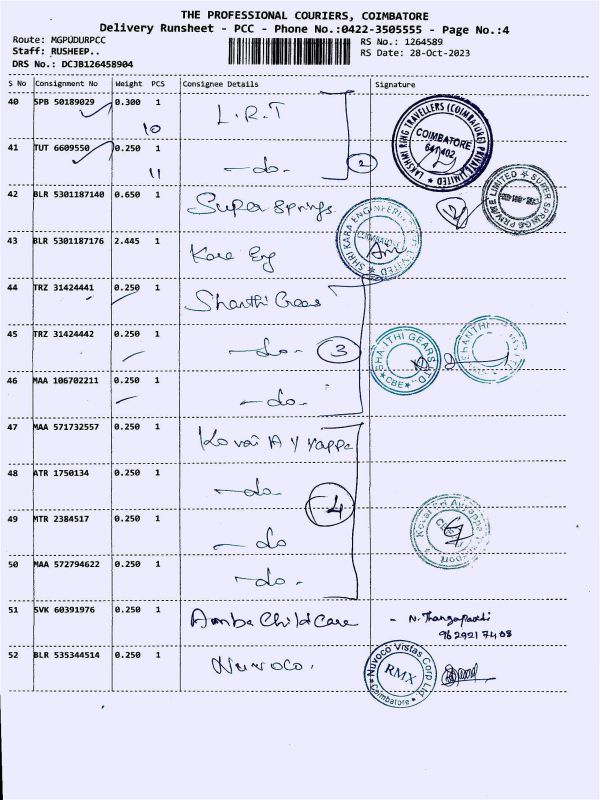 THE PROFESSIONAL COURIERS, COIMBATORE
Delivery Runsheet - PCC - Phone No.:0422-3505555 - Page No.:4
Route: MGPUDURPCC
RS No.: 1264589
Staff: RUSHEEP..
RS Date: 28-Oct-2023
DRS No.: DCJB126458904
S No Consignment No Weight PCS Consignee Details Signature
40 SPB 50189029 0.300 1 L.R.T
10
LAKSHMI RING TRAVELLERS (COIMBATORE) PRIVATE LIMITED
COIMBATORE
641402
41 TUT 6609550 0.250 1 -do-
11
2
42 BLR 5301187140 0.650 1 Super Springs
SUPER SPRINGS PRIVATE LIMITED
43 BLR 5301187176 2.445 1 Kara Eng
SHRI KARA ENGINEERING LIMITED
COIMBATORE
44 TRZ 31424441 0.250 1 Shanthi Gears
45 TRZ 31424442 0.250 1 -do- 3
SHANTHI GEARS LTD
CBE
SHANTHI
46 MAA 106702211 0.250 1 -do-
47 MAA 571732557 0.250 1 Kovai Ayyappa
48 ATR 1750134 0.250 1 -do
4
49 MTR 2384517 0.250 1 -do
50 MAA 572794622 0.250 1 -do-
51 SVK 60391976 0.250 1 Amba Child Care - N. Thangapandi
9629217408
52 BLR 535344514 0.250 1 Nuvoco.
Nuvoco Vistas Corp Ltd.
RMX
Coimbatore